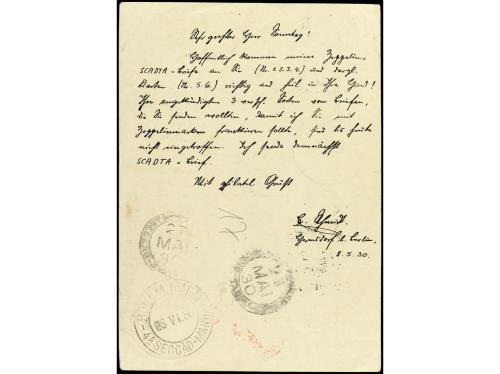 Sehr geehrter Herr Sonntag!
Hoffentlich kommen meine Zeppelin-
SCADTA-Briefe an Sie (Nr. 1.2.3.4.) und dergl.
Karten (Nr. 5 6.) richtig und heil in Ihre Hand!
Ihre angekündigten 3 versch. Sorten von Briefen,
die Sie senden wollten, damit ich Sie mit
Zeppelinmarken frankieren sollte, sind bis heute
nicht eingetroffen. Ich sende demnächst
SCADTA-Brief.
Mit philatel. Gruß
Hermsdorf b. Berlin,
8.5.30.
27
MAI
30
MAI
30
06 VI.30
4ª SECCÃO